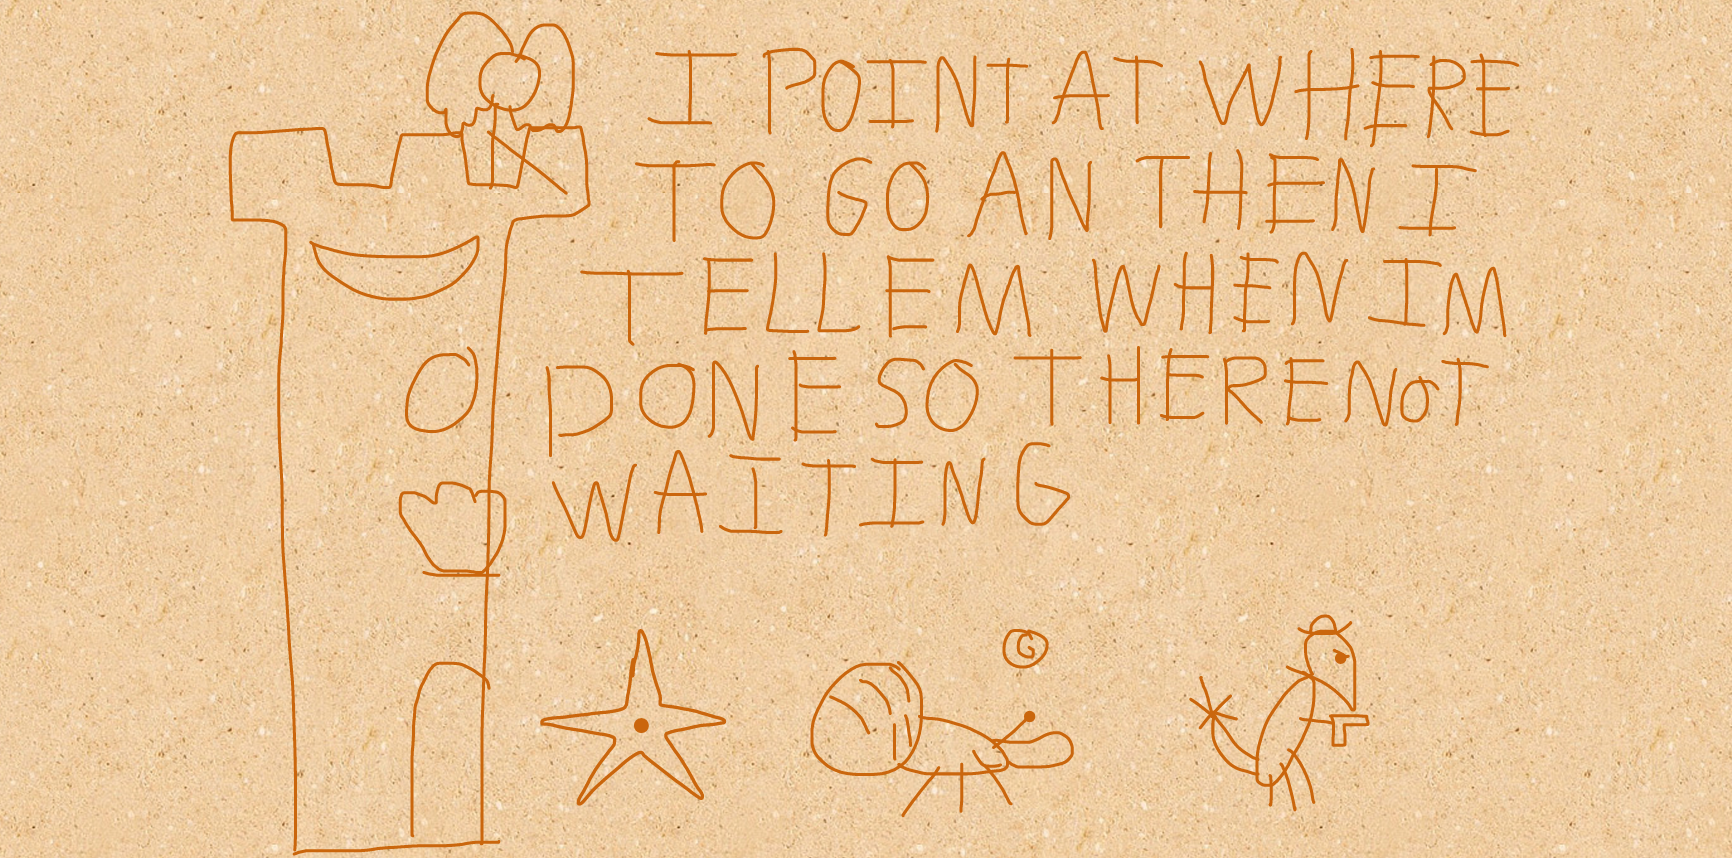 I POINT AT WHERE
TO GO AN THEN I
TELL EM WHEN IM
DONE SO THERE NOT
WAITING